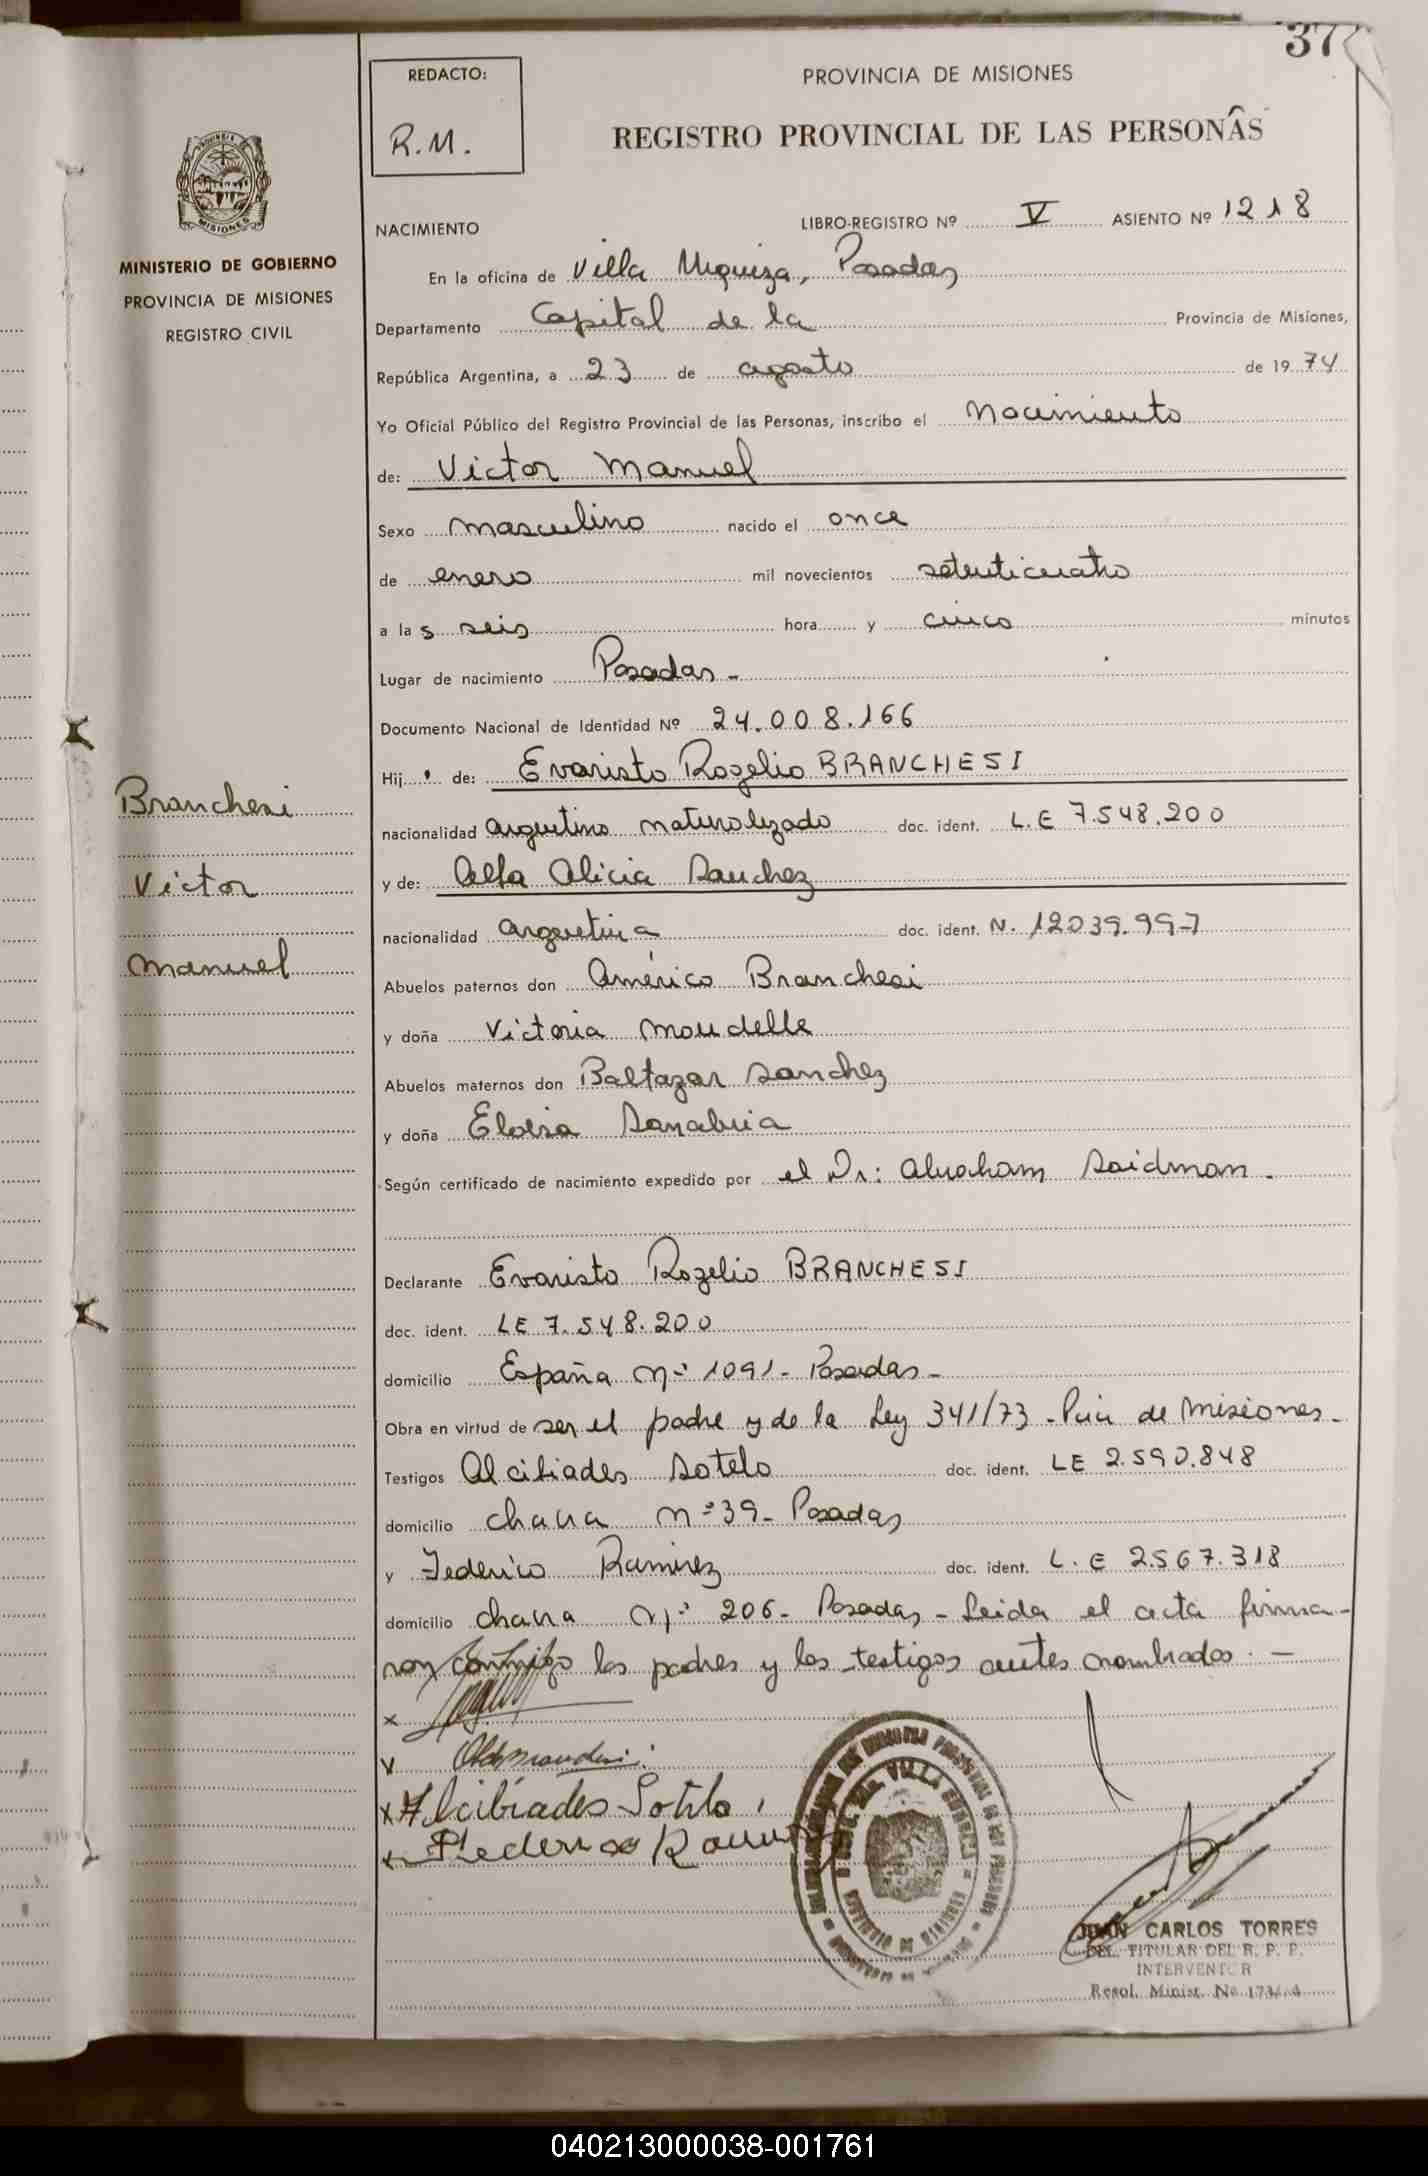 37
REDACTO:
R.M.
PROVINCIA DE MISIONES
REGISTRO PROVINCIAL DE LAS PERSONAS
PROVINCIA DE
MISIONES
MINISTERIO DE GOBIERNO
PROVINCIA DE MISIONES
REGISTRO CIVIL
NACIMIENTO LIBRO-REGISTRO Nº V ASIENTO Nº 1218
En la oficina de Villa Urquiza, Posadas
Departamento Capital de la Provincia de Misiones,
República Argentina, a 23 de agosto de 1974
Yo Oficial Público del Registro Provincial de las Personas, inscribo el Nacimiento
de: Victor Manuel
Sexo masculino nacido el once
de enero mil novecientos setenticuatro
a las seis hora y cinco minutos
Lugar de nacimiento Posadas -
Documento Nacional de Identidad Nº 24.008.166
Hij de: Evaristo Rogelio BRANCHESI
nacionalidad argentino naturalizado doc. ident. L.E 7.548.200
y de: Alicia Sanchez
nacionalidad argentina doc. ident. N. 12039.997
Abuelos paternos don Américo Branchesi
y doña Victoria
Abuelos maternos don Baltazar Sanchez
y doña Eloisa Sanabria
Según certificado de nacimiento expedido por el Dr: Abraham Saidman.
Declarante Evaristo Rogelio BRANCHESI
doc. ident. LE 7.548.200
domicilio España Nº 1091 - Posadas -
Obra en virtud de ser el padre y de la Ley 341/73 - de Misiones -
Testigos Alcibiades Sotelo doc. ident. LE 2.590.848
domicilio chacra nº 39 - Posadas
y Federico Ramirez doc. ident. L.E 2.567.318
domicilio chacra Nº 206 - Posadas - Leida el acta firma-
ron conmigo los padres y los testigos antes nombrados. -
Branchesi
Victor
Manuel
x
x
x Alcibíades Sotelo
x Federico
JUAN CARLOS TORRES
DEL. TITULAR DEL R. P. P.
INTERVENTOR
Resol. Minist. No.
040213000038-001761